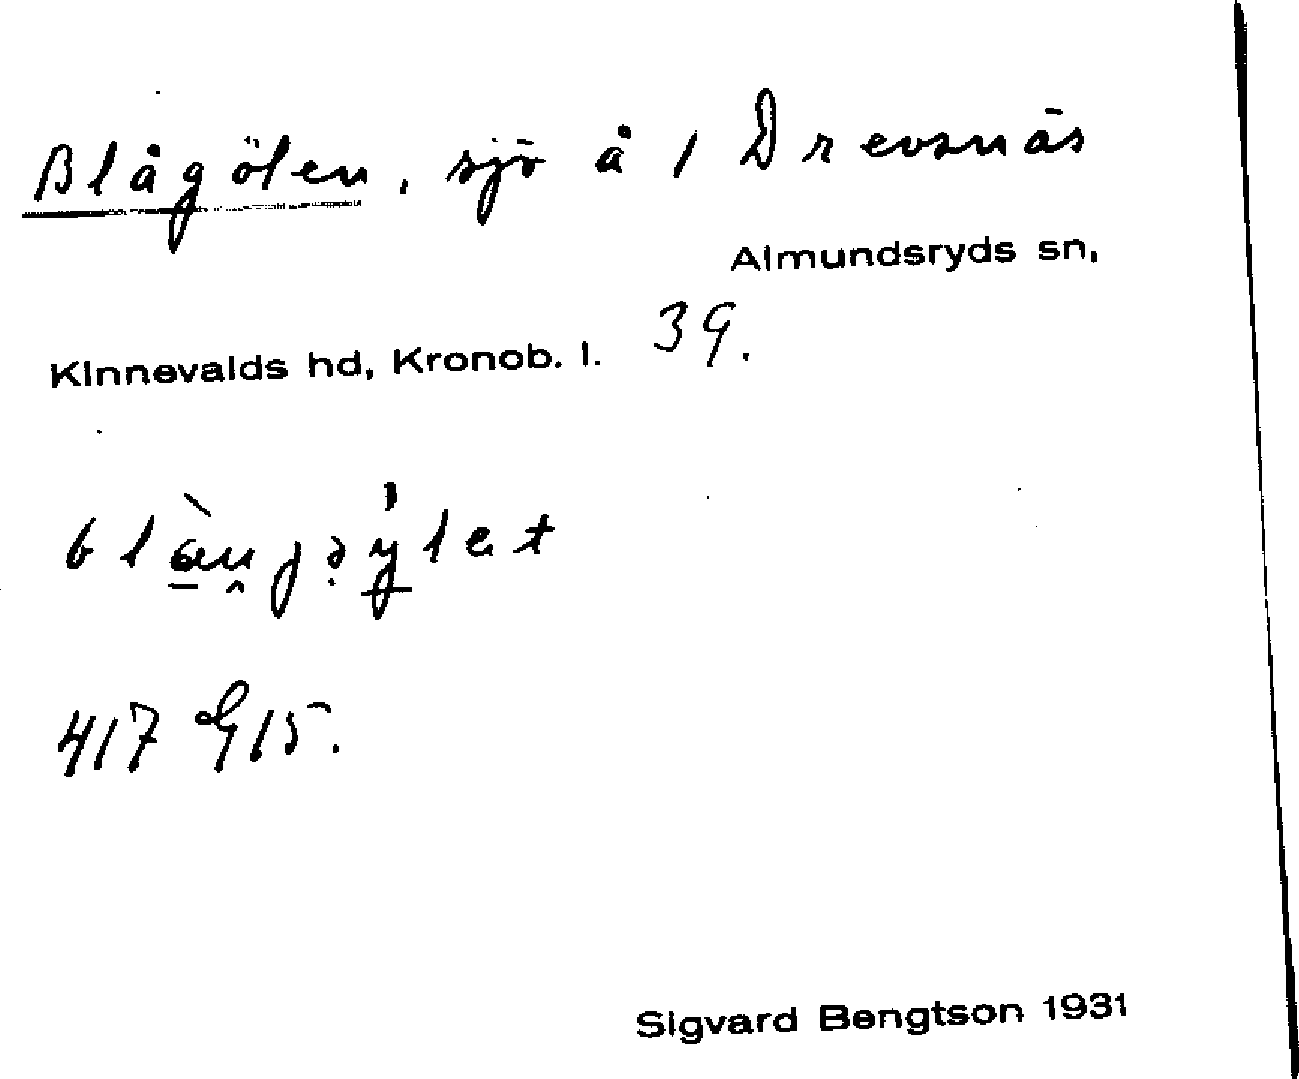 Blågölen, sjö å 1 Drevsnäs
Almundsryds sn,
Kinnevalds hd, Kronob. l. 39.
417 G15.
Sigvard Bengtson 1931